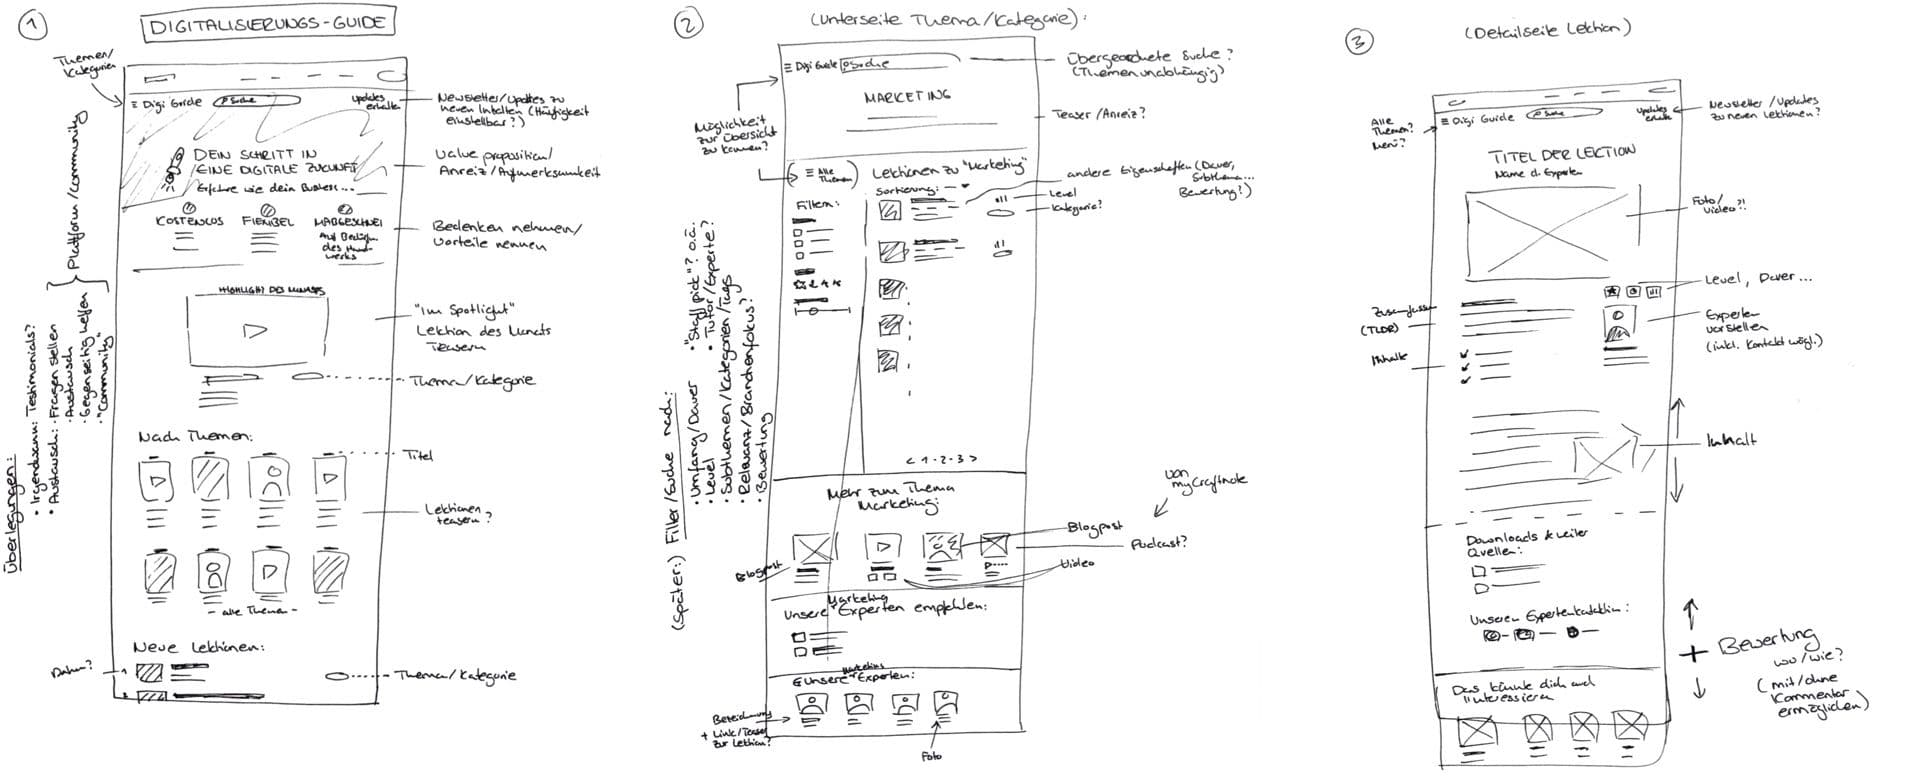 1
DIGITALISIERUNGS-GUIDE
Themen/
Kategorien
≡ Digi Guide
Suche
updates
erhalte
Newsletter/Updates zu
neuen Inhalten (Häufigkeit
einstellbar?)
DEIN SCHRITT IN
EINE DIGITALE ZUKUNFT
Erfahre wie dein Business...
Value proposition/
Anreiz/Aufmerksamkeit
KOSTENLOS
FLEXIBEL
MAßGESCHNEI
Auf Bedürfn.
des Hand-
werks
Bedenken nehmen/
Vorteile nennen
HIGHLIGHT DES MONATS
"Im Spotlight"
Lektion des Monats
Teasern
Thema/Kategorie
Nach Themen:
Titel
Lektionen
teasern?
- alle Themen -
Neue Lektionen:
Datum?
Thema/Kategorie
Überlegungen:
• Irgendwann: Testimonials?
• Austausch: · Fragen stellen
· Austausch
· Gegenseitig helfen
· "Community"
Plattform/Community
2
(Unterseite Thema/Kategorie):
≡ Digi Guide
Suche
Übergeordnete Suche?
(Themenunabhängig)
MARKETING
Teaser/Anreiz?
Möglichkeit
zur Übersicht
zu kommen?
≡ Alle
Themen
Lektionen zu "Marketing"
Sortierung:
andere Eigenschaften (Dauer,
Subthema...
Bewertung?)
Level
Kategorie?
Filtern:
< 1-2-3 >
(später:) Filter/Suche nach:
• Umfang/Dauer
• Level
• Subthemen/Kategorien/Tags
• Relevanz/Branchenfokus?
• Bewertung
• "Staff pick"? o.ä.
• Tutor/Experte?
Mehr zum Thema
Marketing:
von
myCraftnote
Blogpost
Podcast?
Blogpost
Video
Marketing
Unsere Experten empfehlen:
Marketing
Unsere Experten:
Bezeichnung
+ Link/Teaser
zur Lektion?
Foto
3
(Detailseite Lektion)
Alle
Themen?
Menü?
≡ Digi Guide
Suche
Updates
erhalte
Newsletter/Updates
zu neuen Lektionen?
TITEL DER LEKTION
Name d. Experten
Foto/
Video?!
Level, Dauer...
Zusammenfassung
(TLDR)
Experten
vorstellen
(inkl. Kontakt mögl.)
Inhalte
Inhalt
Downloads & weiter
Quellen:
Unseren Experten kontaktieren:
+ Bewertung
wo/wie?
(mit/ohne
Kommentar
ermöglichen)
Das könnte dich auch
interessieren